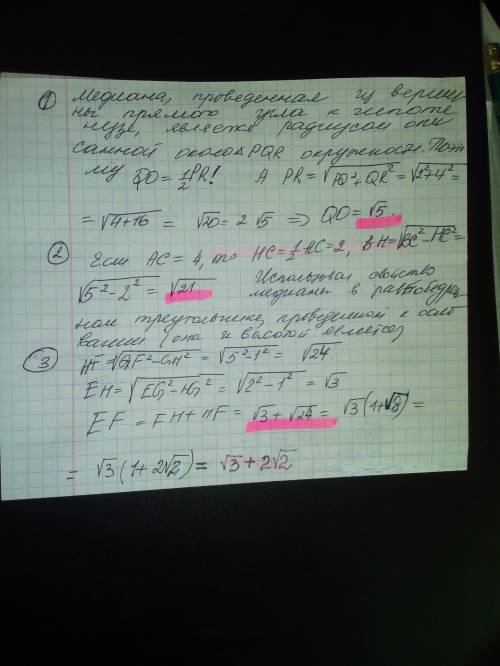 ① Медиана, проведенная из верши
ны прямого угла к гипоте
нузе, является радиусом опи
санной около △ PQR окружности. Поэто
му QO = 1/2 PR! А PR = √PQ²+QR² = √2²+4² =
= √4+16 = √20 = 2√5 ⇒ QO = √5.
② Если AC = 4, то HC = 1/2 AC = 2, BH = √BC²-HC² =
√5²-2² = √21 Использовал свойство
медианы в равнобедрен
ном треугольнике, проведенной к осно
ванию (она и высотой является)
③ HF = √GF²-GH² = √5²-1² = √24
EH = √EG²-HG² = √2²-1² = √3
EF = EH + HF = √3 + √24 = √3 (1+√8) =
= √3 (1+2√2) = √3 + 2√2